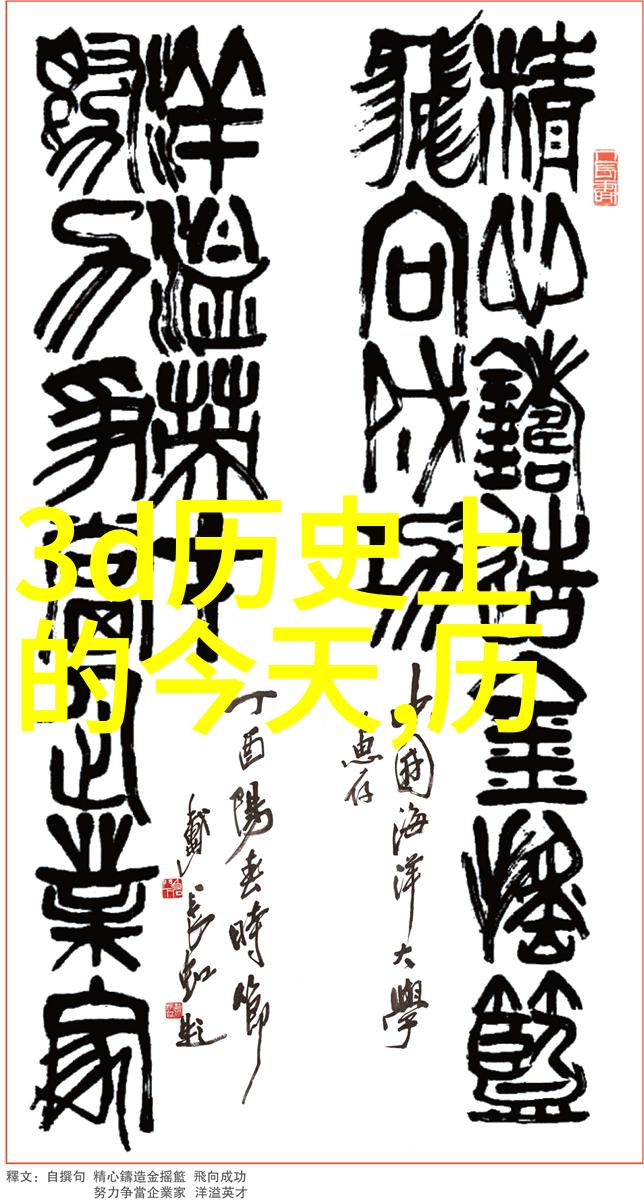 精心鑄造金摇籃
飛向成功
中國海洋大學
惠存
努力争當企業家
洋溢英才
丁酉陽春時節
戴長虹題
3d历史上
的今天,历
釋文：自撰句 精心鑄造金摇籃 飛向成功
努力争當企業家 洋溢英才